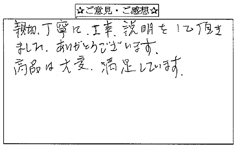 ☆ご意見・ご感想☆
親切、丁寧に、工事、説明をして頂き
ました。ありがとうございます。
商品は大変、満足しています。